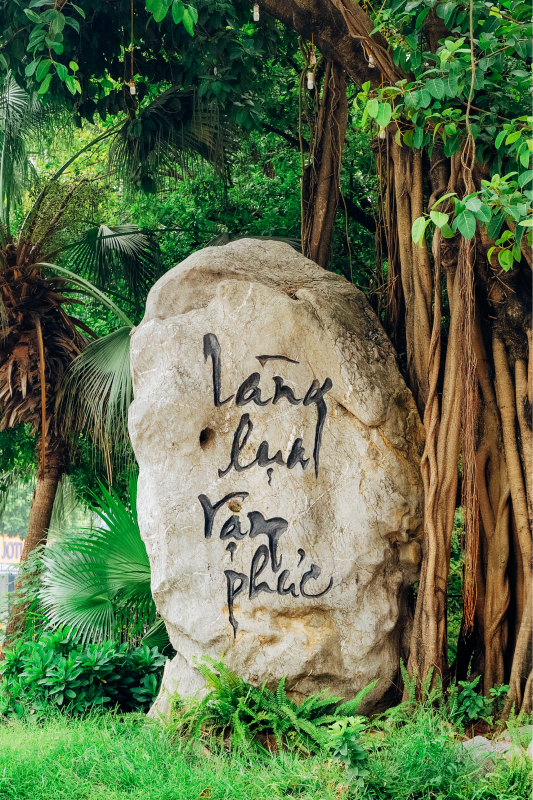 Làng
lụa
Vạn
phúc